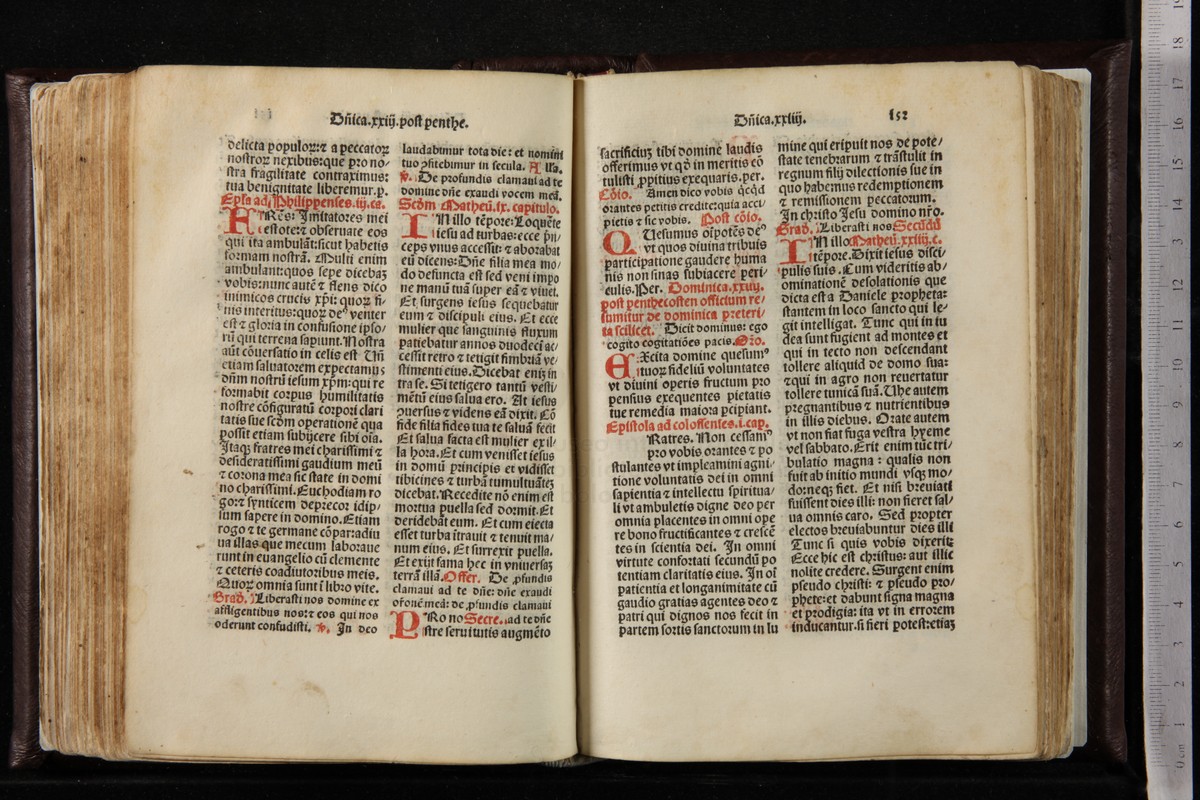 Dñica.xxiij.post penthe.
delicta populoꝝ: ⁊ a peccatoꝝ
nostroꝝ nexibus: que pro no⸗
stra fragilitate contraximus:
tua benignitate liberemur. p.
Epľa ad Philippenses. iij. ca.
FRes: Imitatores mei
estote: ⁊ obseruate eos
qui ita ambulãt: sicut habetis
formam nostrã. Multi enim
ambulant: quos sepe dicebaȝ
vobis: nunc autẽ ⁊ flens dico
inimicos crucis xp̃i: quoꝝ fi⸗
nis interitus: quoꝝ deꝰ venter
est ⁊ gloria in confusione ipso⸗
rũ qui terrena sapiunt. Nostra
aũt cõuersatio in celis est Uñ
etiam saluatorem expectamus
dñm nostrũ iesum xp̃m: qui re
formabit corpus humilitatis
nostre cõfiguratũ corpori clari
tatis sue scd̃m operationẽ qua
possit etiam subijcere sibi oĩa.
Itaqȝ fratres mei charissimi ⁊
desideratissimi gaudium meũ
⁊ corona mea sic state in domi
no charissimi. Euchodiam ro
go: ⁊ synticem deprecor idip⸗
sum sapere in domino. Etiam
rogo ⁊ te germane cõpar: adiu
ua illas que mecum laboraue
runt in euangelio cũ clemente
⁊ ceteris coadiutoribus meis.
Quoꝝ omnia sunt ĩ libro vite.
Grad̃. Liberasti nos domine ex
affligentibus nos: ⁊ eos qui nos
oderunt confudisti. ꝟ. In deo
laudabimur tota die: et nomini
tuo ↄfitebimur in secula. Alľa.
ꝟ. De profundis clamaui ad te
domine dñe exaudi vocem meã.
Scd̃m Matheũ. ix. capitulo.
IN illo tẽpore: Loquẽte
iesu ad turbas: ecce prĩ⸗
ceps vnus accessit: ⁊ adorabat
eũ dicens: Dñe filia mea mo⸗
do defuncta est sed veni impo
ne manũ tuã super eã ⁊ viuet.
Et surgens iesus sequebatur
eum ⁊ discipuli eius. Et ecce
mulier que sanguinis fluxum
patiebatur annos duodecĩ ac⸗
cessit retro ⁊ tetigit fimbriã ve⸗
stimenti eius. Dicebat eniȝ in
tra se. Si tetigero tantũ vesti⸗
mẽtũ eius salua ero. At iesus
ↄuersus ⁊ videns eã dixit. Cõ
fide filia fides tua te saluã fecit
Et salua facta est mulier ex il⸗
la hora. Et cum venisset iesus
in domũ principis et vidisset
tibicines ⁊ turbã tumultuãteȝ
dicebat. Recedite nõ enim est
mortua puella sed dormit. Et
deridebãt eum. Et cum eiecta
esset turba ĩtrauit ⁊ tenuit ma⸗
num eius. Et surrexit puella.
Et exijt fama hec in vniuersaȝ
terrã illã. Offer. De ꝓfundis
clamaui ad te dñe: dñe exaudi
orõnẽ meã: de ꝓfundis clamaui
PRo no Secre. ad te dñe
stre seruitutis augmẽto
Dñica.xxiiij. 152
sacrificiuȝ tibi domine laudis
offerimus vt qd̃ in meritis cõ
tulisti ꝓpitius exequaris. per.
Cõio. Amen dico vobis qcqd
orantes petitis credite: quia acci⸗
pietis ⁊ fie vobis. Post cõio.
QUesumus oĩpotẽs deꝰ
vt quos diuina tribuis
participatione gaudere huma
nis non sinas subiacere peri⸗
culis. Per. Dominica. xxiiij.
post penthecosten officium re⸗
sumitur de dominica preteri⸗
ta scilicet. Dicit dominus: ego
cogito cogitatiões pacis. Oro.
EXcita domine quesumꝰ
tuoꝝ fideliũ voluntates
vt diuini operis fructum pro
pensius exequentes pietatis
tue remedia maiora ꝑcipiant.
Epistola ad colossenses. i. cap.
FRatres. Non cessamꝰ
pro vobis orantes ⁊ po
stulantes vt impleamini agni⸗
tione voluntatis dei in omni
sapientia ⁊ intellectu spiritua⸗
li vt ambuletis digne deo per
omnia placentes in omni ope
re bono fructificantes ⁊ crescẽ
tes in scientia dei. In omni
virtute confortati secundũ po
tentiam claritatis eius. In oĩ
patientia et longanimitate cũ
gaudio gratias agentes deo ⁊
patri qui dignos nos fecit in
partem sortis sanctorum in lu
mine qui eripuit nos de pote⸗
state tenebrarum ⁊ trãstulit in
regnum filij dilectionis sue in
quo habemus redemptionem
⁊ remissionem peccatorum.
In christo Iesu domino nr̃o.
Grad̃. Liberasti nos Secũdũ
IN illo Matheũ. xxiiij. c.
tẽpore. Dixit iesus disci⸗
pulis suis. Cum videritis ab⸗
ominationẽ desolationis que
dicta est a Daniele propheta:
stantem in loco sancto qui le⸗
git intelligat. Tunc qui in iu
dea sunt fugient ad montes et
qui in tecto non descendant
tollere aliquid de domo sua:
⁊ qui in agro non reuertatur
tollere tunicã suã. Uhe autem
pregnantibus ⁊ nutrientibus
in illis diebus. Orate autem
vt non fiat fuga vestra hyeme
vel sabbato. Erit enim tũc tri⸗
bulatio magna: qualis non
fuit ab initio mundi vsqȝ mo⸗
do: neqȝ fiet. Et nisi breuiati
fuissent dies illi: non fieret sal⸗
ua omnis caro. Sed propter
electos breuiabuntur dies illi
Tunc si quis vobis dixerit:
Ecce hic est christus: aut illic
nolite credere. Surgent enim
pseudo christi: ⁊ pseudo pro⸗
phete: et dabunt signa magna
et prodigia: ita vt in errorem
inducantur. si fieri potest: etiaȝ